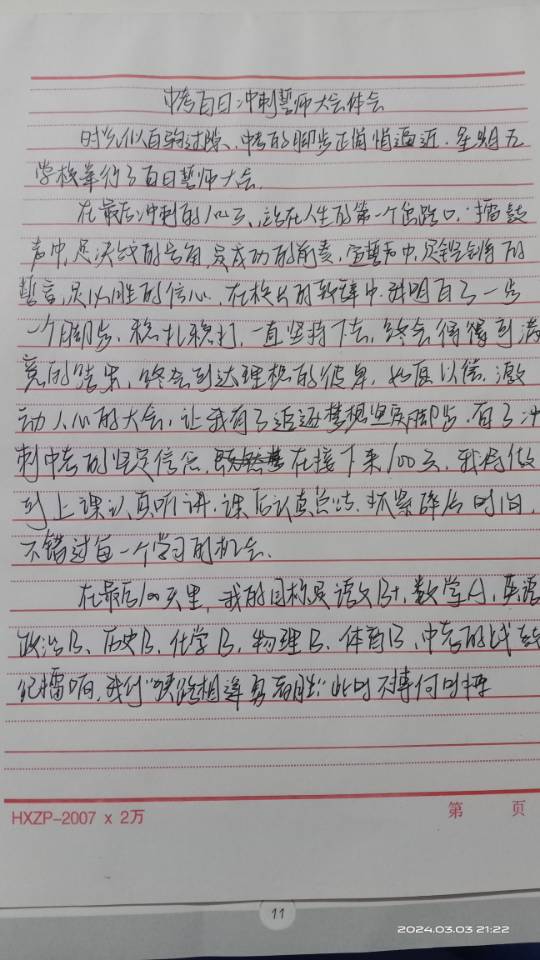 中考百日冲刺誓师大会体会
时光似白驹过隙、中考的脚步正悄悄逼近.星期五
学校举行了百日誓师大会.
在最后冲刺的100天、站在人生的第一个岔路口.擂鼓
声中,是决战的号角,是成功的前奏,宣誓声中,是铿锵的
誓言,是必胜的信心.在校长的致辞中.我明白了一步
一个脚步.稳扎稳打,一直坚持下去,终会得得到满
意的结果,终会到达理想的彼岸,始愿以偿.激
动人心的大会,让我有了追逐梦想坚实脚步.有了冲
刺中考的坚定信念.在接下来100天.我将做
到上课认真听讲.课后认真总结.抓紧碎片时间,
不错过每一个学习的机会.
在最后100天里,我的目标是语文B+,数学A,英语
政治B、历史B、化学B、物理B、体育B,中考的战鼓
已擂响,我们"狭路相逢勇者胜"此时不搏何时搏
HXZP-2007 x 2万
第 页
11
2024.03.03 21:22